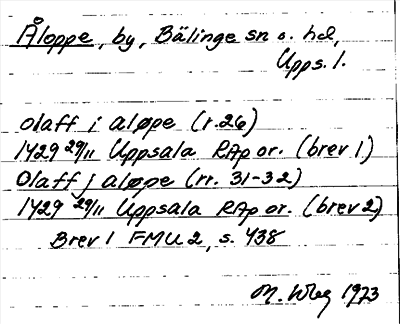 Åloppe, by, Bälinge sn o. hd,
Upps. l.
olaff i aløpe (r. 26)
1429 29/11 Uppsala RAp or. (brev 1)
Olaff j aløpe (rr. 31-32)
1429 29/11 Uppsala RAp or. (brev 2)
Brev 1 FMU 2, s. 438
M. Wbg 1973